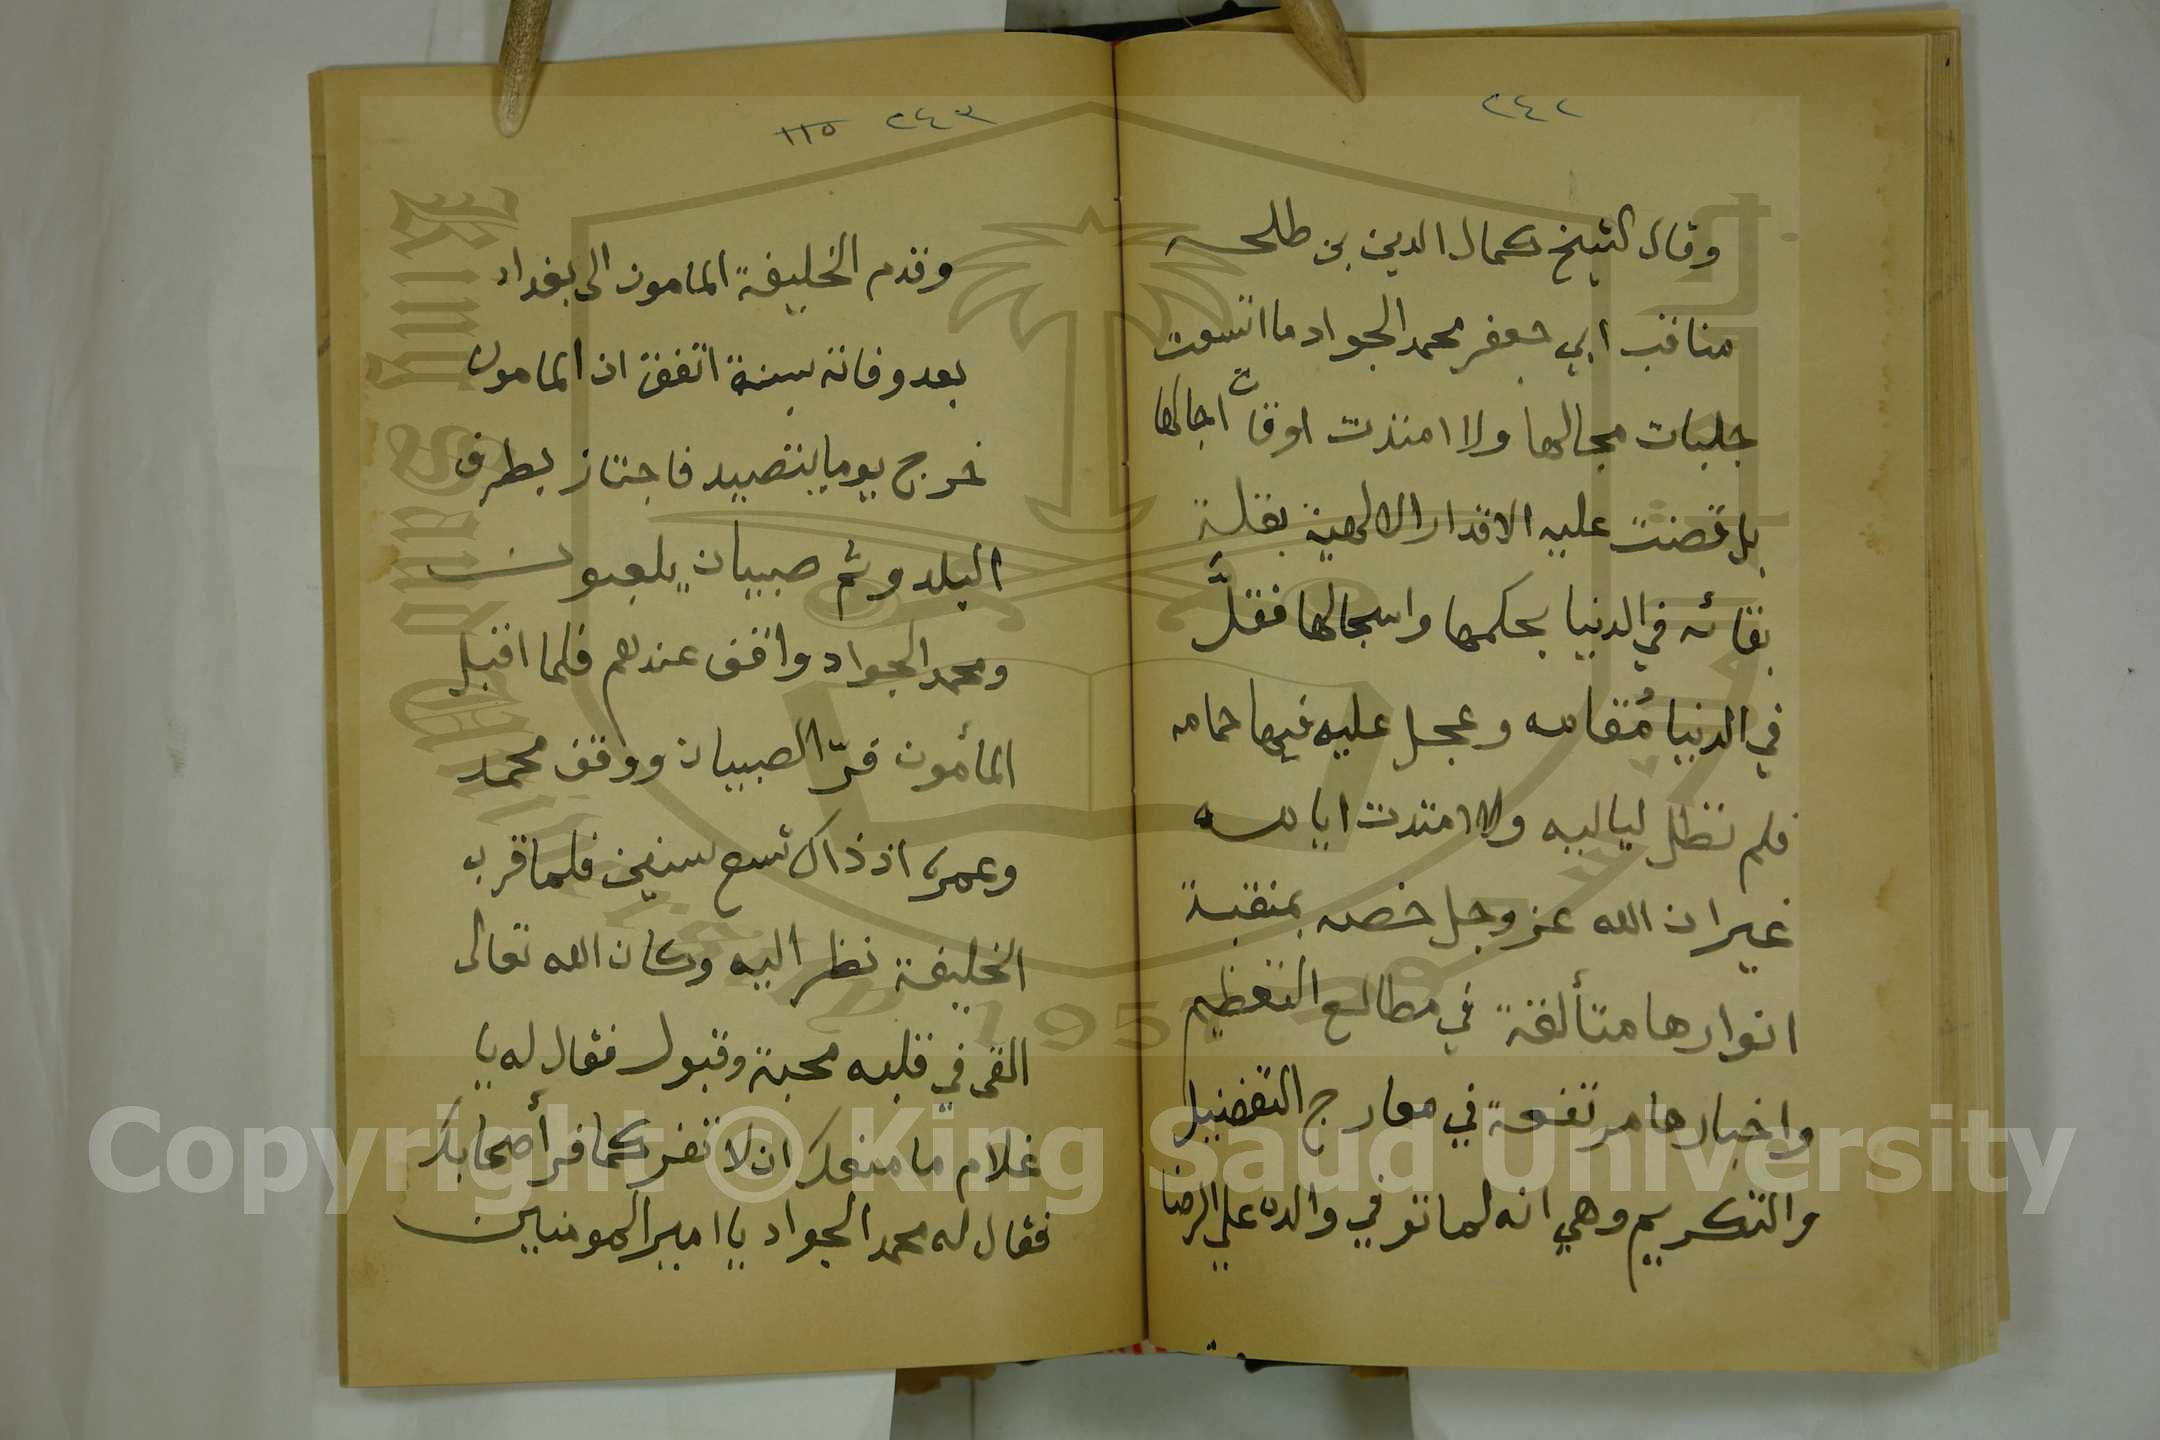 ٢٤٢
وقال الشيخ كمال الدين بن طلحه
مناقب ابي جعفر محمد الجواد ما اتسعت
جلبات مجالها ولا امتدت اوقات اجالها
بل قضت عليه الاقدار الالهية بقلة
بقائه في الدنيا بحكمها واسجالها فقلَّ
في الدنيا مُقامه وعجل عليه فيها حمامه
فلم تطل لياليه ولا امتدت ايامه
غير ان الله عز وجل خصه بمنقبة
انوارها متألقة في مطالع التعظيم
واخبارها مرتفعة في معارج التفضيل
والتكريم وهي انه لما توفي والده علي الرضا
٢٤٣ ١١٥
وقدم الخليفة المامون الى بغداد
بعد وفاته بسنة اتفق ان المامون
خرج يوما يتصيد فاجتاز بطرف
البلد وثم صبيان يلعبون
ومحمد الجواد واقف عندهم فلما اقبل
المأمون فرّ الصبيان ووقف محمد
وعمره اذ ذاك تسع سنين فلما قرب
الخليفة نظر اليه وكان الله تعالى
القى في قلبه محبة وقبول فقال له يا
غلام ما منعك ان لا تفر كما فر أصحابك
فقال له محمد الجواد يا امير المومنين
King Saud University
1957
Copyright © King Saud University